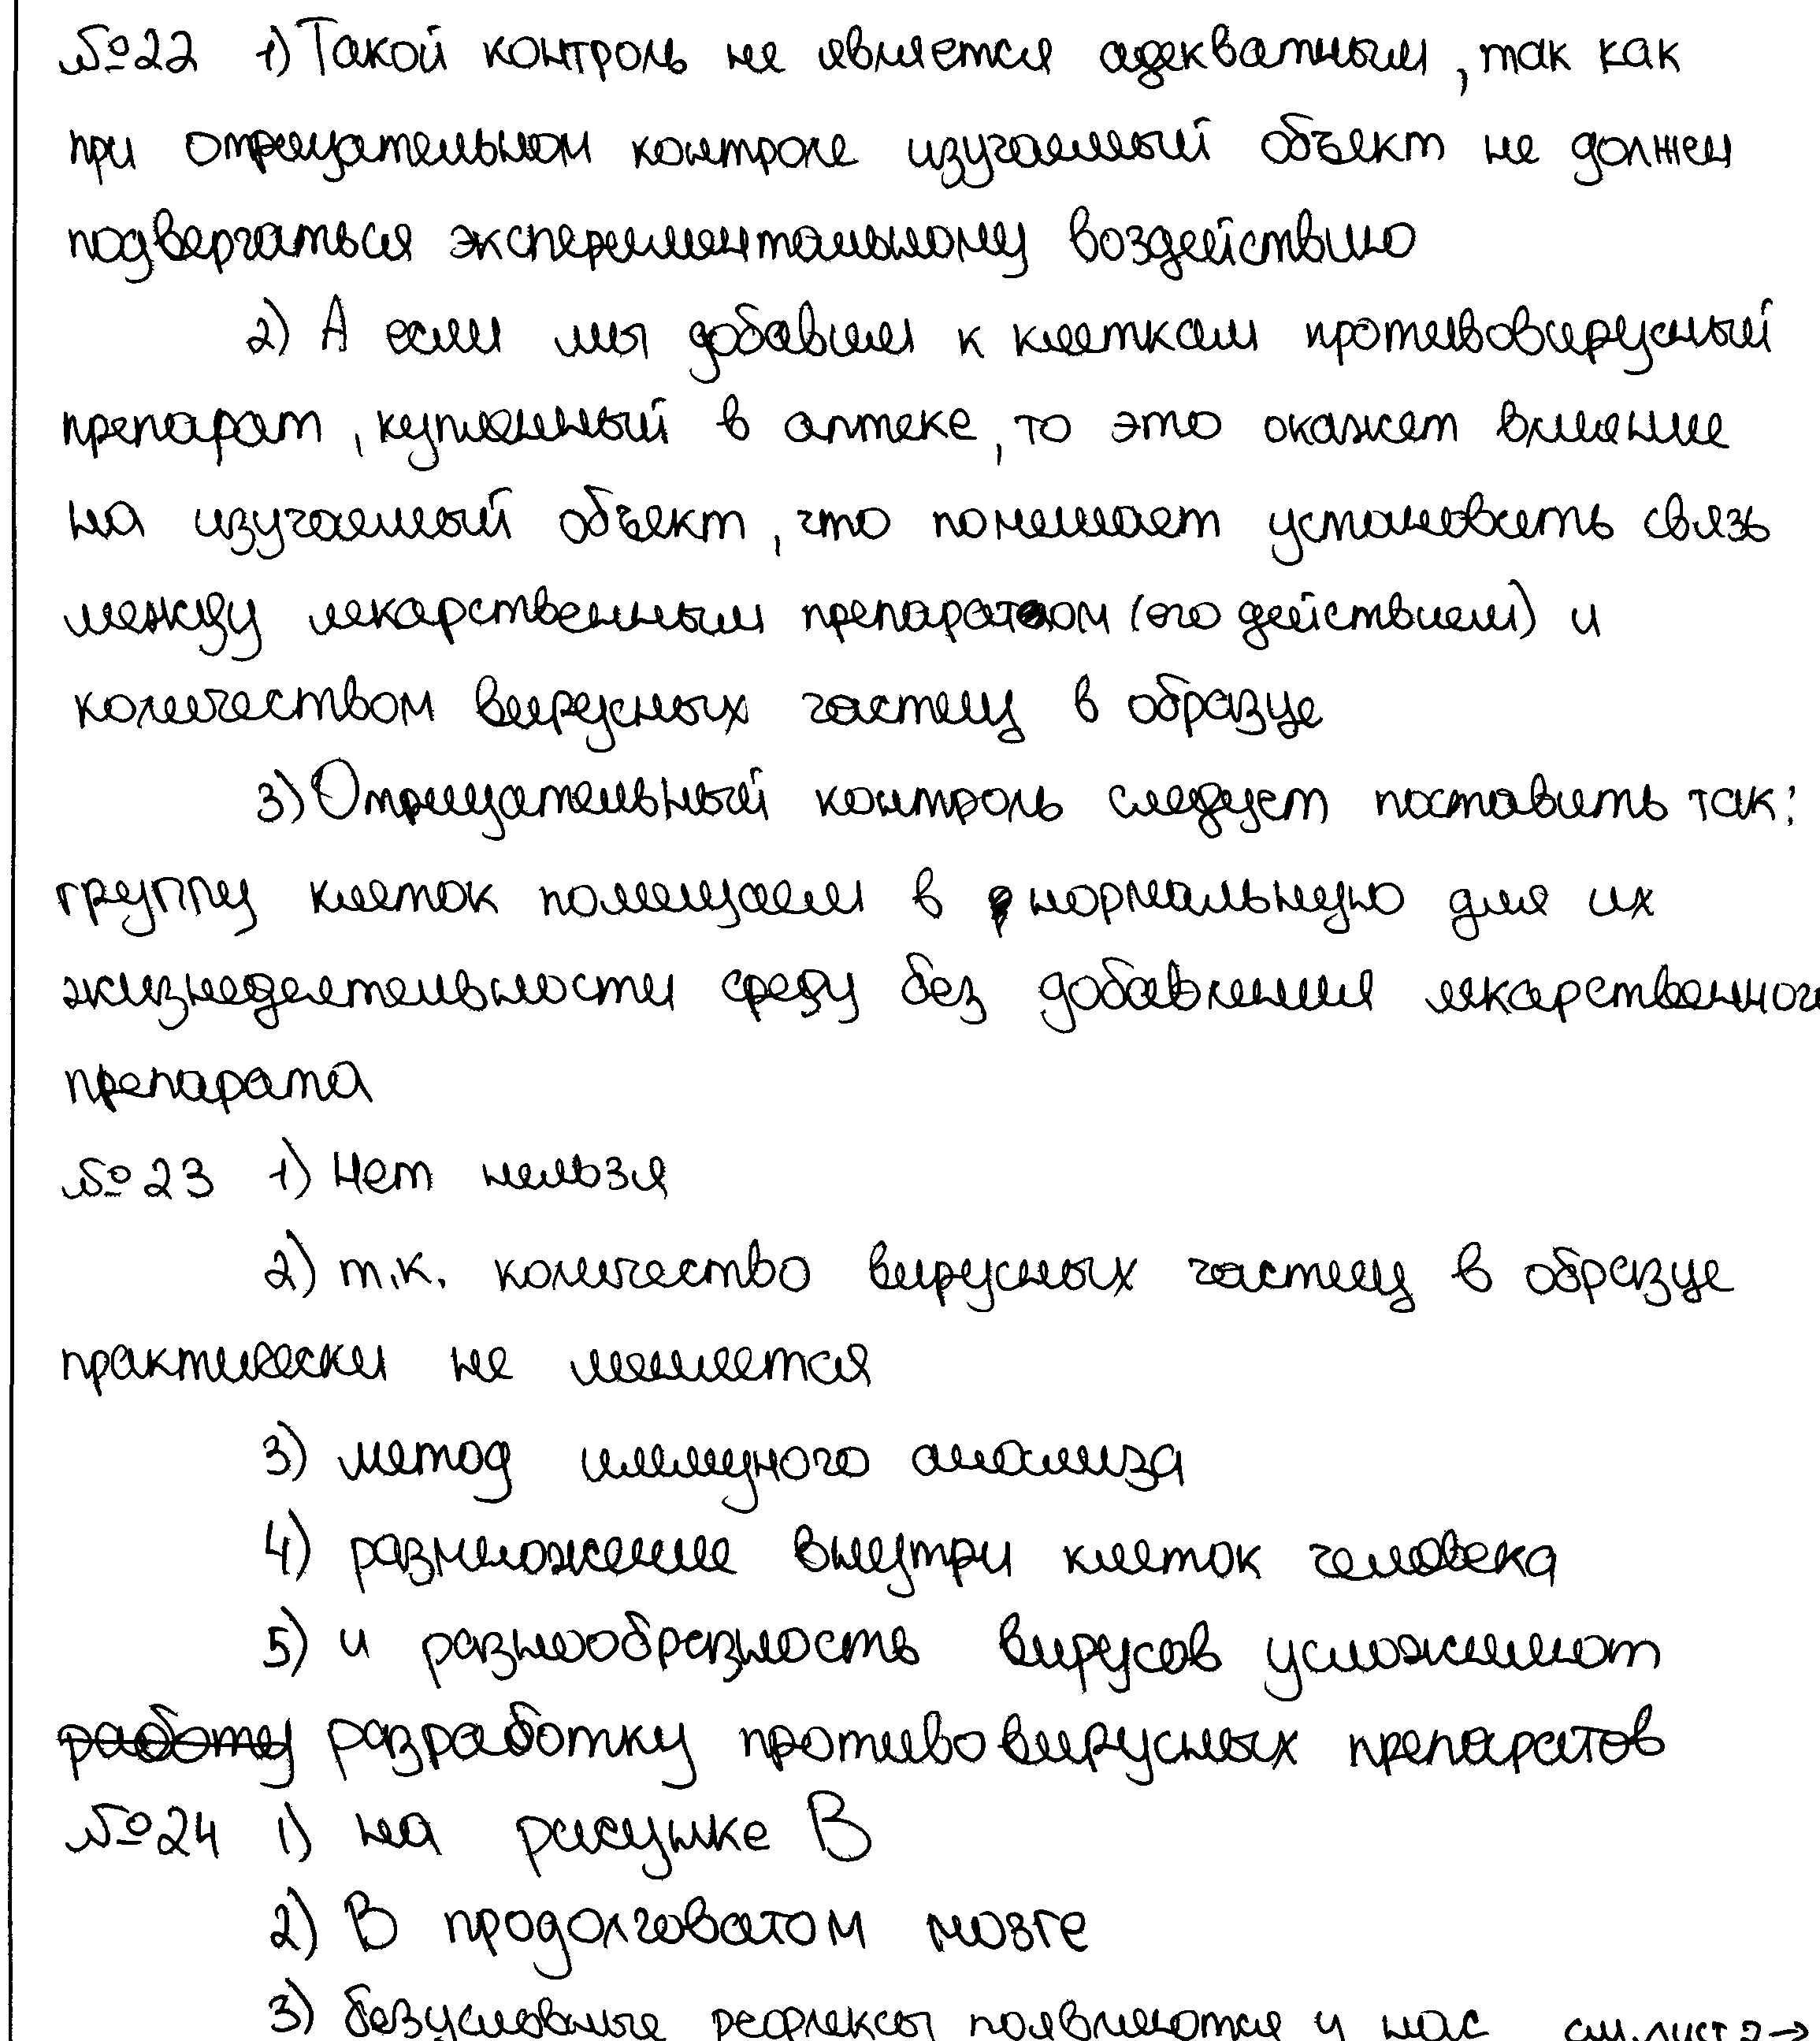 №22 1) Такой контроль не является адекватным, так как
при отрицательном контроле изучаемый объект не должен
подвергаться экспериментальному воздействию
2) А если мы добавим к клеткам противовирусный
препарат, купленный в аптеке, то это окажет влияние
на изучаемый объект, что помешает установить связь
между лекарственным препаратом (его действием) и
количеством вирусных частиц в образце
3) Отрицательный контроль следует поставить так:
группу клеток помещаем в нормальную для их
жизнедеятельности среду без добавления лекарственного
препарата
№23 1) Нет нельзя
2) т.к. количество вирусных частиц в образце
практически не меняется
3) метод иммуного анализа
4) размножение внутри клеток человека
5) и разнообразность вирусов усложняют
работу разработку противовирусных препаратов
№24 1) на рисунке В
2) В продолговатом мозге
3) безусловные рефлексы появляются у нас см.лист 2→